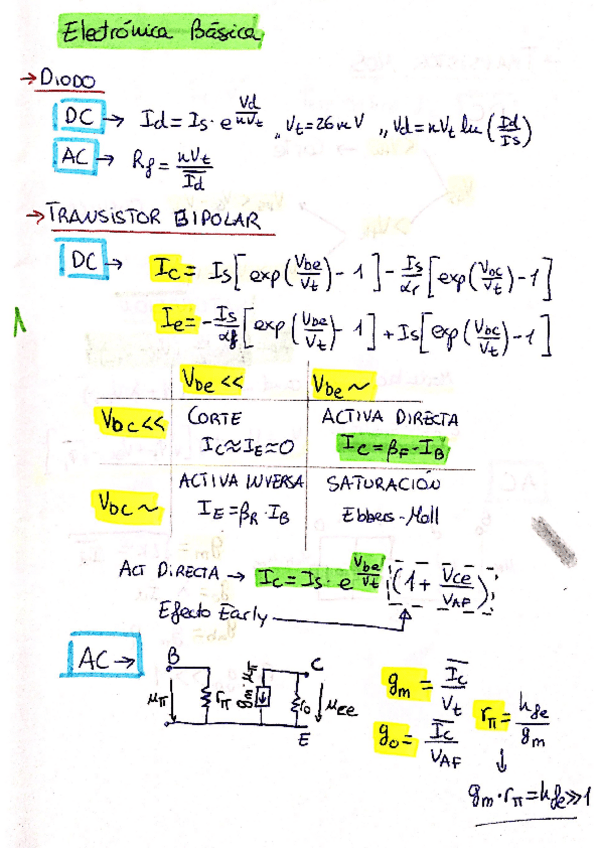 Electrónica Básica
→ DIODO
DC → Id = Is · e^(Vd/nVt) ,, Vt = 26mV ,, Vd = nVt ln (Id/Is)
AC → Rf = nVt/Id
→ TRANSISTOR BIPOLAR
DC → Ic = Is[exp(Vbe/Vt) - 1] - Is/αr [exp(Vbc/Vt) - 1]
Ie = - Is/αf [exp(Vbe/Vt) - 1] + Is[exp(Vbc/Vt) - 1]
Vbe << Vbe ~
Vbc << CORTE ACTIVA DIRECTA
IC ≈ IE ≈ 0 IC = βF · IB
ACTIVA INVERSA SATURACIÓN
Vbc ~ IE = βR · IB Ebbers-Moll
ACT DIRECTA → Ic = Is · e^(Vbe/Vt) (1 + Vce/VAF)
Efecto Early
AC →
B C
μπ rπ gm·μπ ro μce
E
gm = Ic/Vt
rπ = hfe/gm
go = Ic/VAF
↓
gm · rπ = hfe >> 1